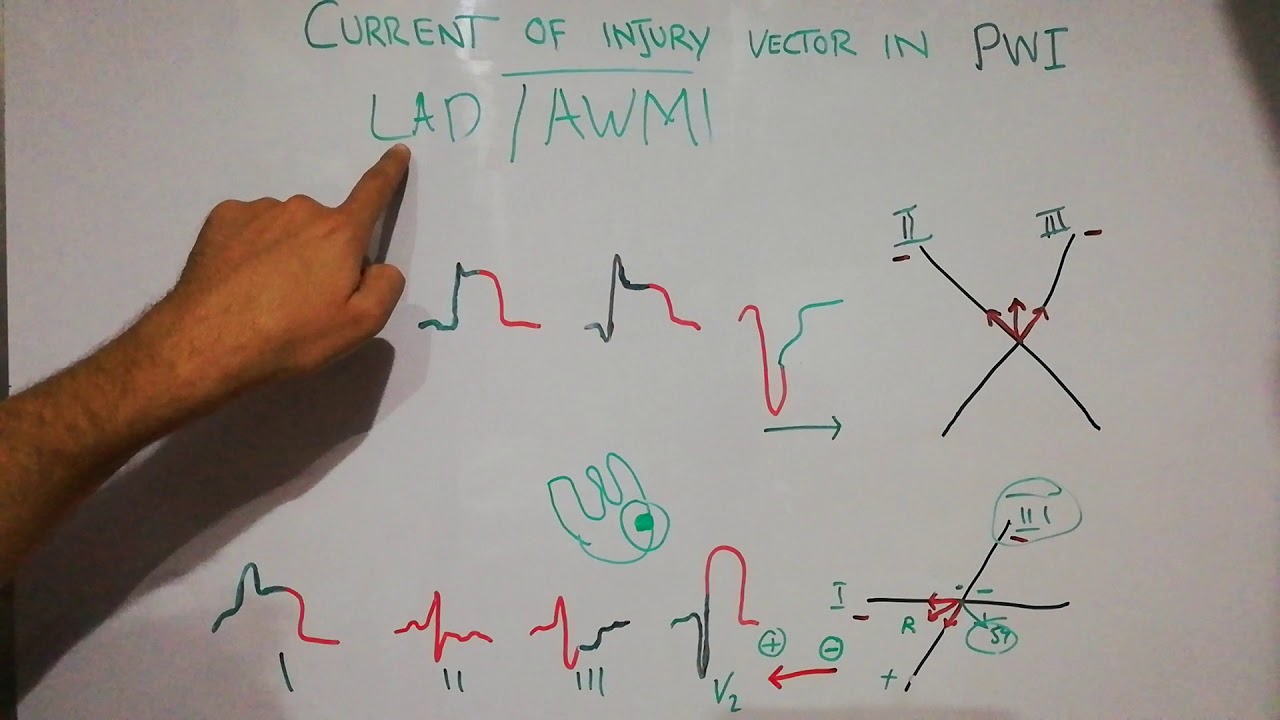 CURRENT OF INJURY VECTOR IN PWI
LAD / AWMI
II III -
-
III
-
I - -
R
+
I II III V2 + -